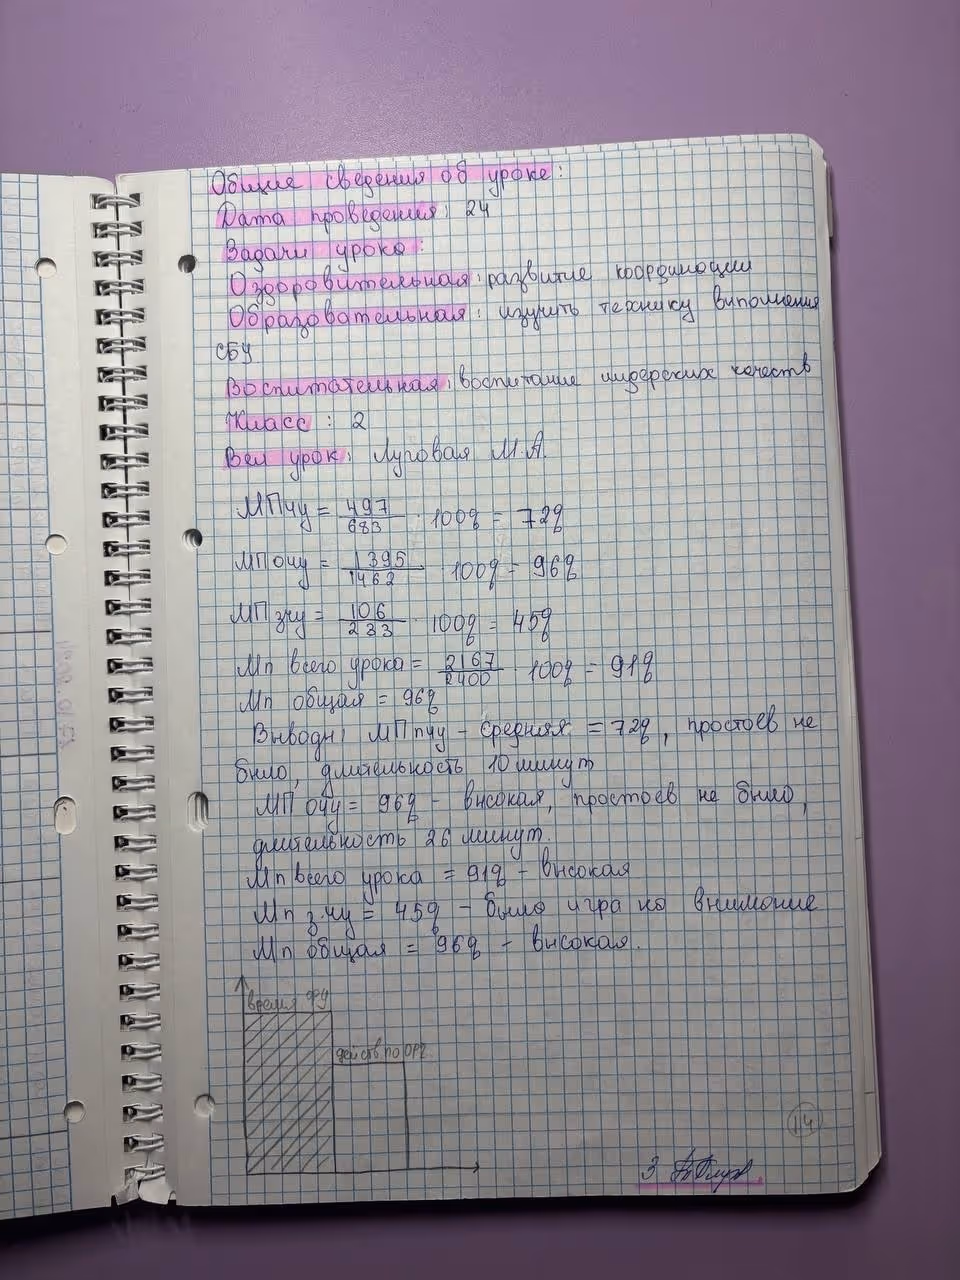 Общие сведения об уроке:
Дата проведения: 24
Задачи урока:
Оздоровительная: развитие координации
Образовательная: изучить технику выполнения
СБУ
Воспитательная: воспитание лидерских качеств
Класс: 2
Вел урок: Луговая М.А.
МПчу = 497/683 · 100% = 72%
МПочу = 1395/1462 · 100% = 96%
МПзчу = 106/233 · 100% = 45%
Мп всего урока = 2167/2400 · 100% = 91%
Мп общая = 96%
Выводы: МПпчу - средняя = 72%, простоев не
было, длительность 10 минут
МПочу = 96% - высокая, простоев не было,
длительность 26 минут.
Мп всего урока = 91% - высокая
Мп з.чу = 45% - была игра на внимание
Мп общая = 96% - высокая.
время ФУ
действ. по орг.
14
3